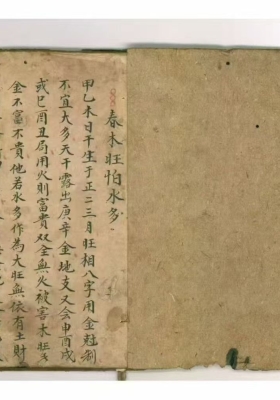 春木旺怕水多
甲乙木日干生于正二三月旺相八字用金尅制
不宜大多天干露出庚辛金地支又会申酉戌
或巳酉丑局用火則富貴双全無火被害木旺
金不富不貴他若水多作為大旺無依有土財